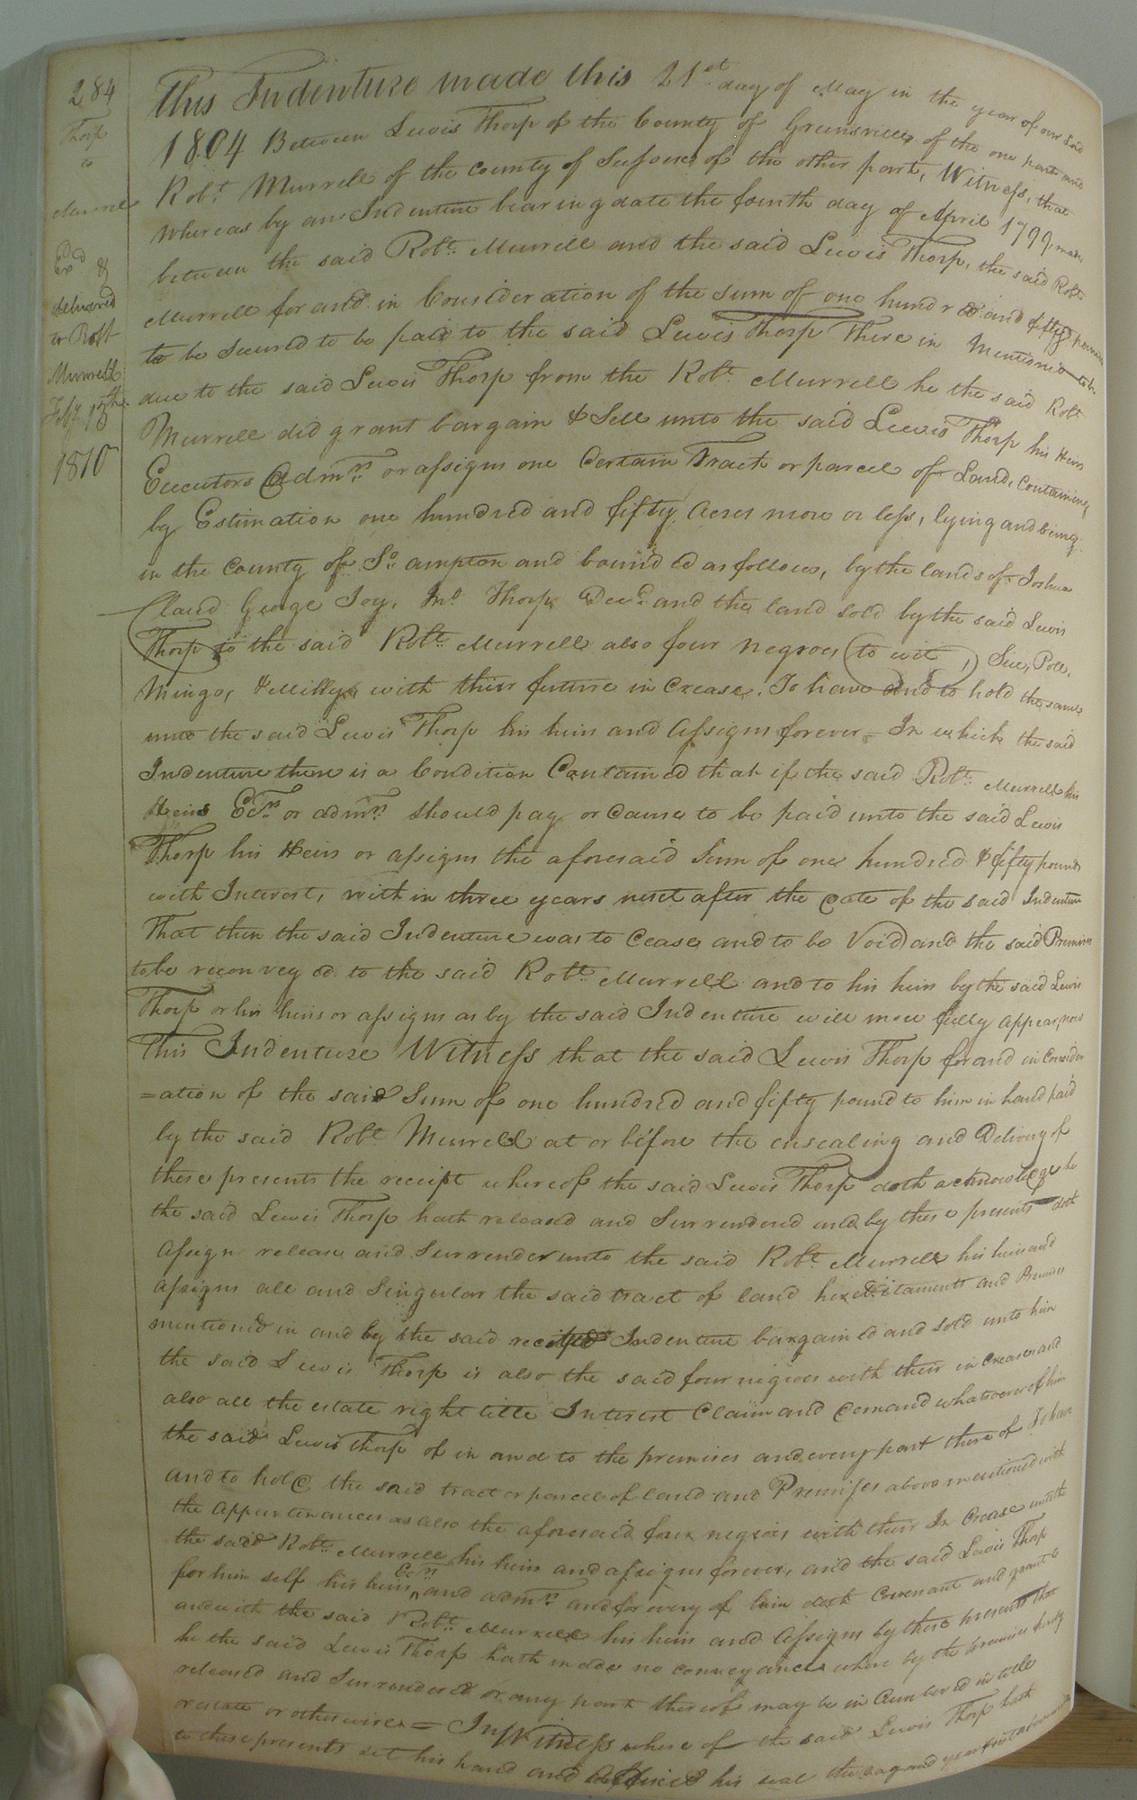 284
Thorp
to
Murrell
Exd &
delivered
to Robt
Murrell
Feby 15th
1810
This Indenture made this 21st day of May in the year of our Lord
1804 Between Lewis Thorp of the County of Greensville of the one part and
Robt. Murrell of the County of Sussex of the other part, Witness, that
Whereas by an Indenture bearing date the fourth day of April 1799, made
between the said Robt. Murrell and the said Lewis Thorp, the said Robt
Murrell for and in Consideration of the sum of one hundred and fifty pounds
to be Secured to be paid to the said Lewis Thorp There in Mentioned to be
due to the said Lewis Thorp from the Robt. Murrell he the said Robt
Murrell did grant bargain & Sell unto the said Lewis Thorp his Heirs
Executors Admrs. or assigns one Certain Tract or parcel of Land, Containing
by Estimation one hundred and fifty Acres more or less, lying and being
in the County of So. ampton and bounded as follows, by the lands of Joshua
Claud George Ivy, Jno. Thorp, Decd. and the land sold by the said Lewis
Thorp to the said Robt. Murrell also four negroes (to wit,) Sue, Poll,
Mingo, & Milly, with their future in Crease. To have and to hold the same
unto the said Lewis Thorp his heirs and Assigns forever = In which the said
Indenture there is a Condition Contained that if the said Robt. Murrell his
Heirs Exrs. or admrs. should pay or Cause to be paid unto the said Lewis
Thorp his Heirs or assigns the aforesaid Sum of one hundred & fifty pounds
with Interest, with in three years next after the Date of the said Indenture
That then the said Indenture was to Cease and to be Void and the said Premises
to be reconveyed to the said Robt. Murrell and to his heirs by the said Lewis
Thorp or his heirs or assigns as by the said Indenture will more fully appear, now
This Indenture Witness that the said Lewis Thorp for and in Consider
=ation of the said Sum of one hundred and fifty pound to him in hand paid
by the said Robt Murrell at or before the ensealing and Delivery of
these presents the receipt whereof the said Lewis Thorp doth acknowledge he
the said Lewis Thorp hath released and Surrendered and by these presents doth
Assign release and Surrender unto the said Robt. Murrell his heirs and
Assigns all and Singular the said tract of land hereditaments and Premises
mentioned in and by the said recited Indenture bargained and sold unto him
the said Lewis Thorp is also the said four negroes with their in Crease and
also all the estate right title Interest Claim and Demand whatsoever of him
the said Lewis Thorp of in and to the premises and every part there of To have
and to hold the said tract or parcel of land and Premises above mentioned with
the appurtenances as also the aforesaid four negroes with their In Crease unto the
the said Robt. Murrell his heirs and assigns forever, and the said Lewis Thorp
for him self his heirs Exrs and admrs. and for every of him doth Covenant and grant to
and with the said Robt. Murrell his heirs and Assigns by these presents that
he the said Lewis Thorp hath made no conveyances where by the premises hereby
released and Surrendered or any part thereof may be in Cumbered in title
or estate or otherwise = In Witness where of the said Lewis Thorp hath
to these presents set his hand and affixed his seal the day and year first above